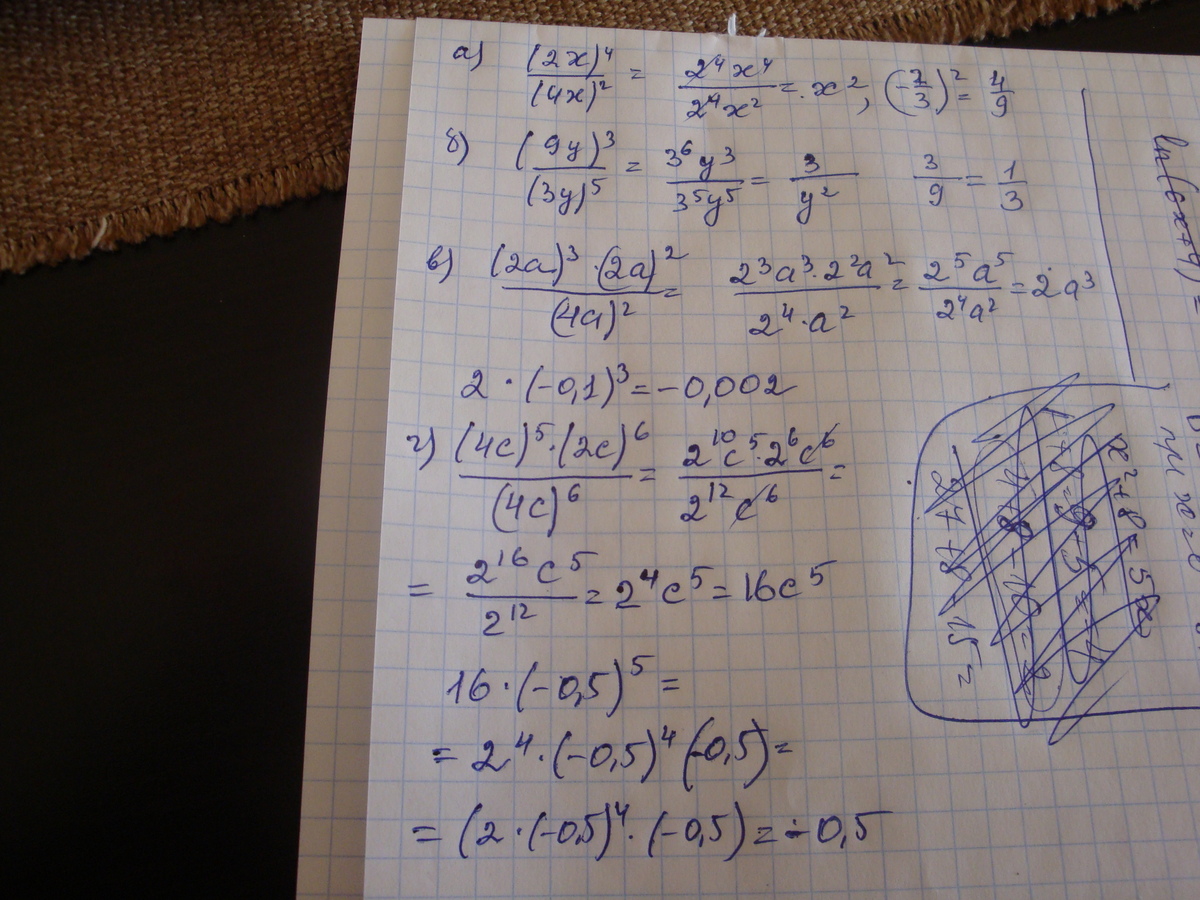 а) (2x)⁴/(4x)² = 2⁴x⁴/2⁴x² = x², (-2/3)² = 4/9
б) (9y)³/(3y)⁵ = 3⁶y³/3⁵y⁵ = 3/y² 3/9 = 1/3
в) (2a)³·(2a)²/(4a)² = 2³a³·2²a²/2⁴·a² = 2⁵a⁵/2⁴a² = 2a³
2·(-0,1)³ = -0,002
г) (4c)⁵·(2c)⁶/(4c)⁶ = 2¹⁰c⁵·2⁶c⁶/2¹²c⁶ =
= 2¹⁶c⁵/2¹² = 2⁴c⁵ = 16c⁵
16·(-0,5)⁵ =
= 2⁴·(-0,5)⁴(-0,5) =
= (2·(-0,5)⁴·(-0,5) = -0,5
x²+8=5x